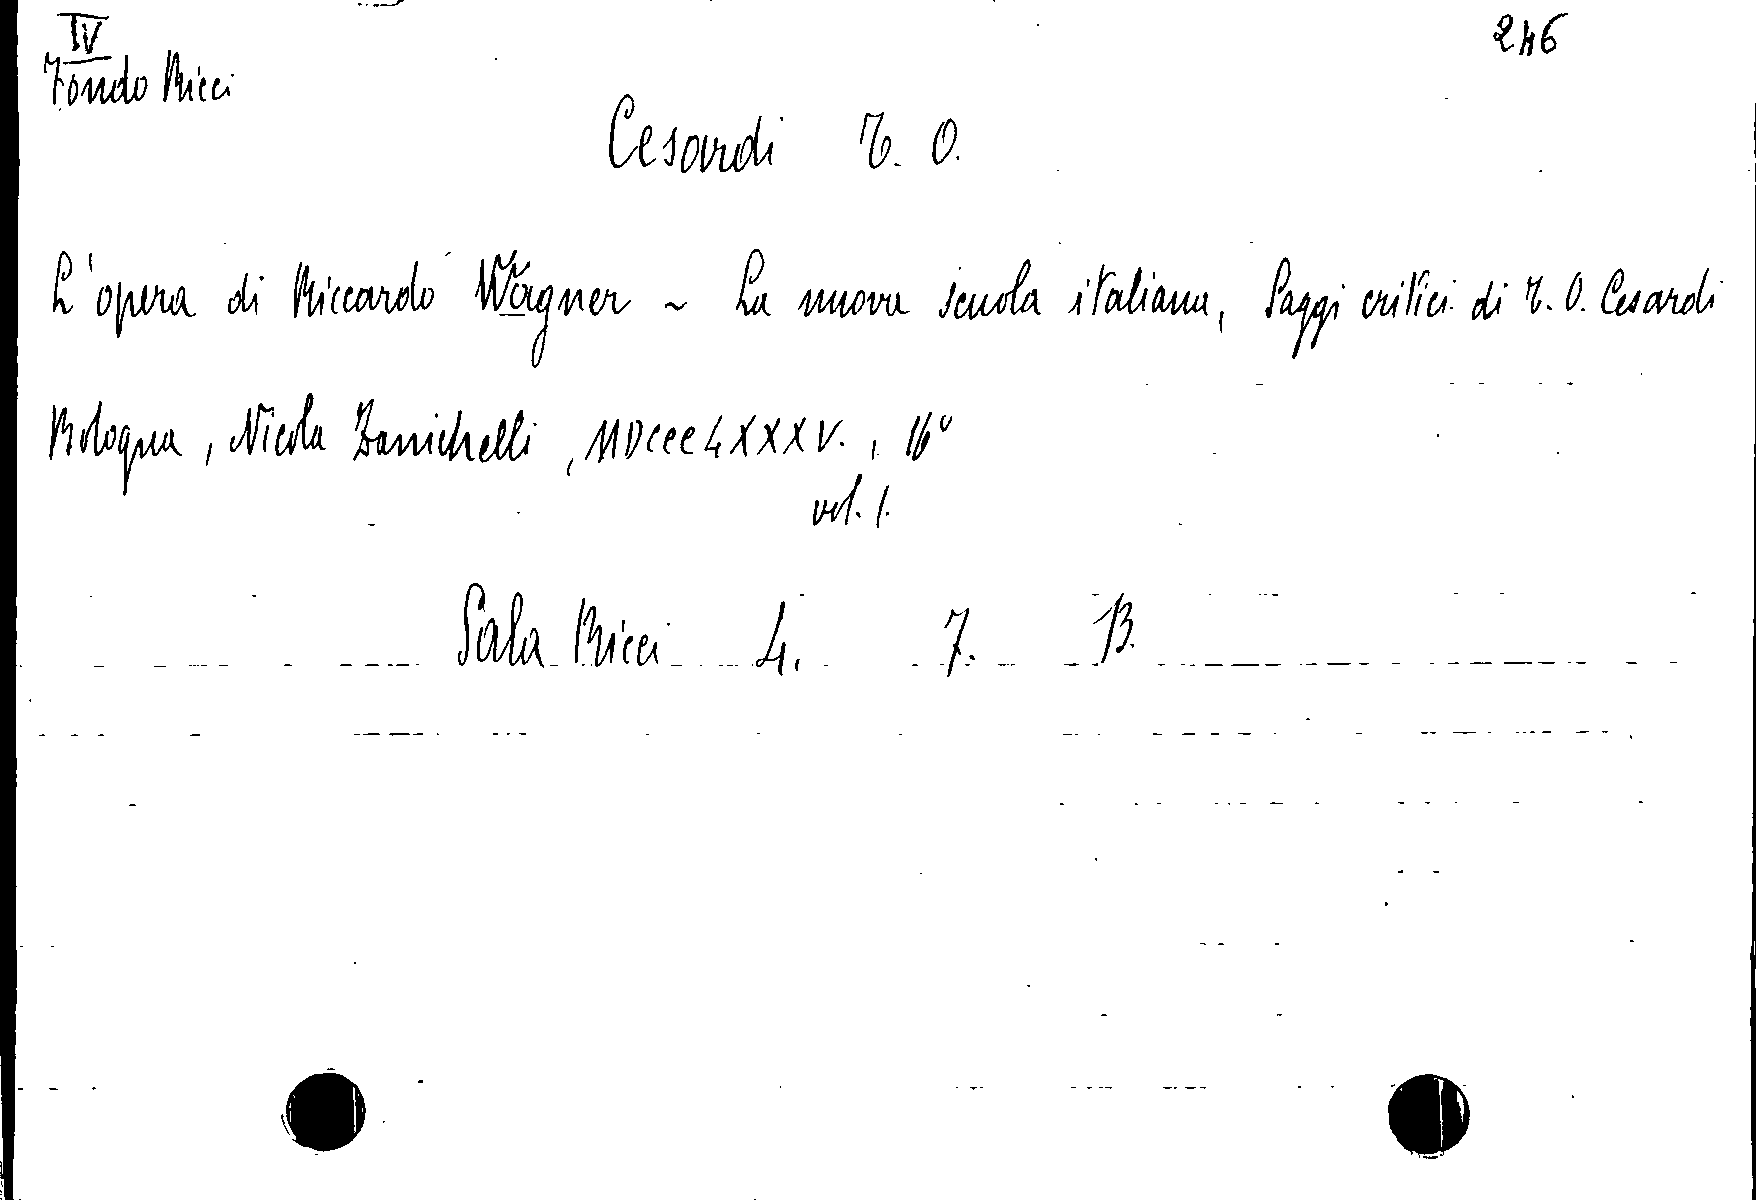 IV
246
Fondo Ricci
Cesardi T. O.
L'opera di Riccardo Wagner ~ La nuova scuola italiana, Saggi critici di T. O. Cesardi
Bologna, Nicola Zanichelli, MDCCCLXXXV., 16°
vol. 1.
Sala Ricci 4. 7. B.